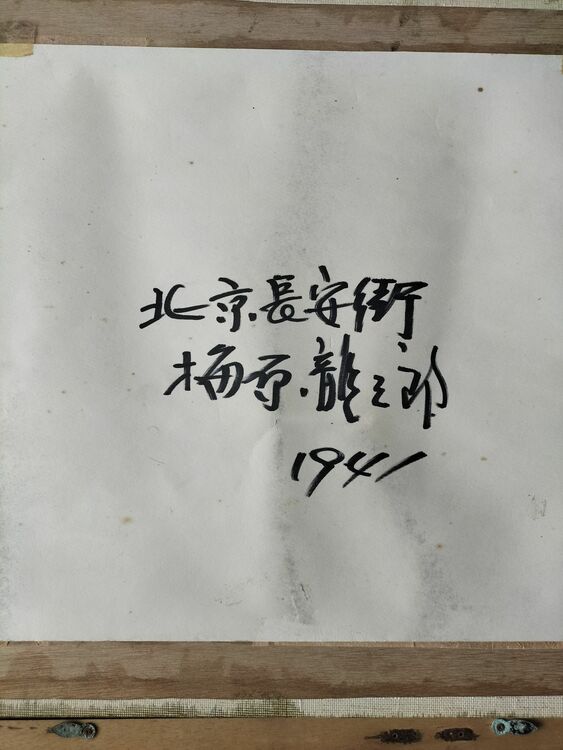 北京長安街
梅原龍三郎
1941